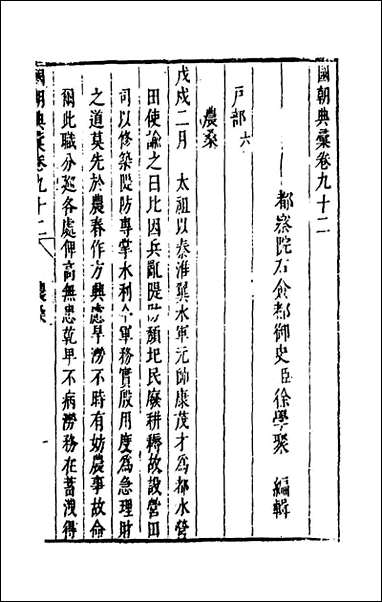 國朝典彙卷九十二
都察院右僉都御史臣徐學聚 編輯
戶部六
農桑
戊戌二月 太祖以秦淮翼水軍元帥康茂才爲都水營
田使諭之曰比因兵亂隄防頹圮民廢耕耨故設營田
司以修築隄防專掌水利今軍務實殷用度爲急理財
之道莫先於農春作方興慮旱澇不時有妨農事故命
爾此職分巡各處俾高無患乾旱不病澇務在蓄洩得
國朝典彙卷九十二 農桑 一